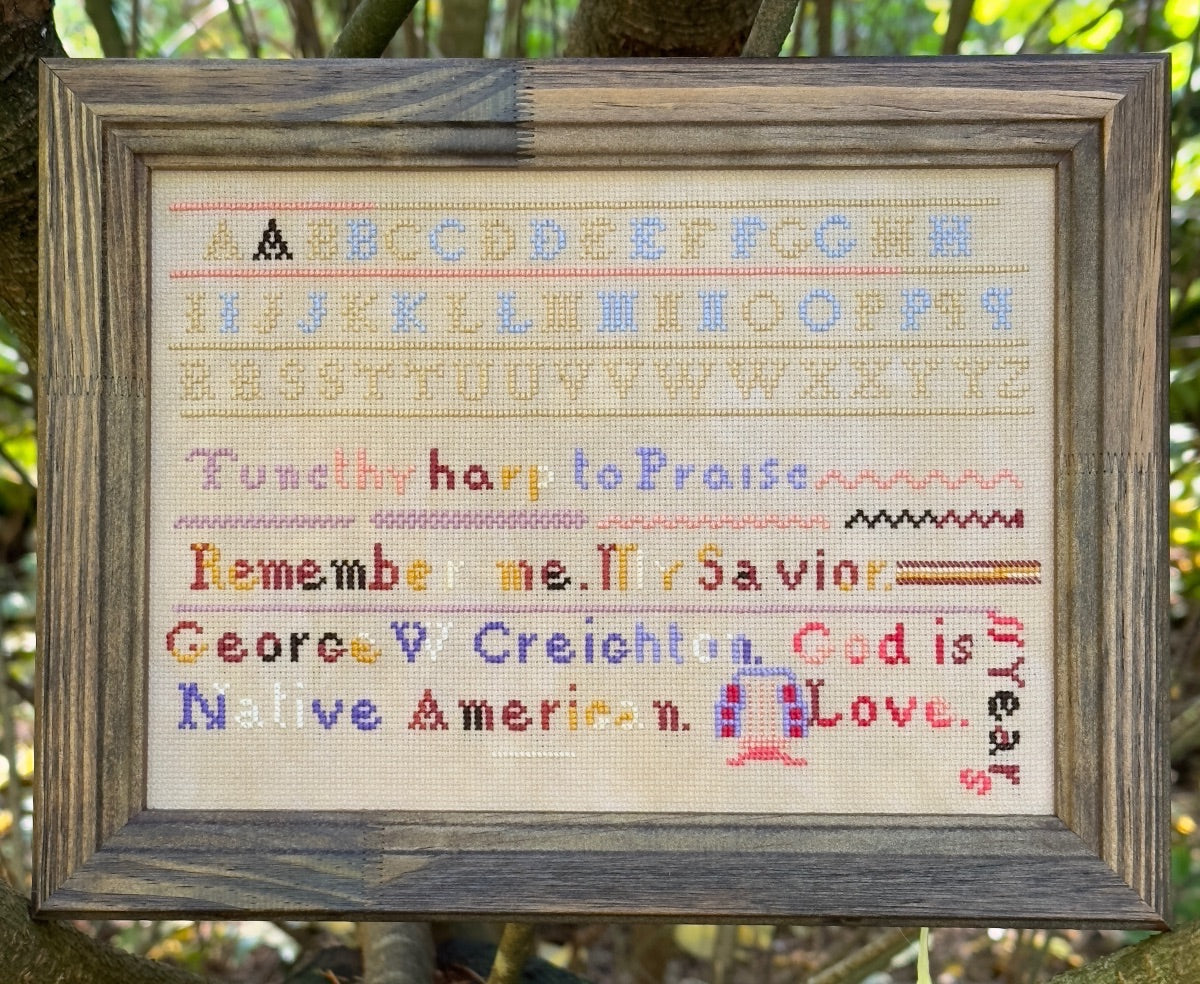 A A B B C C D D E E F F G G H H
I I J J K K L L M M N N O O P P q q
R R S S T T U U V V W W X X Y Y Z
Tune thy harp to Praise
Remember me. My Savior.
George W Creighton. God is
Native American. Love.
Years